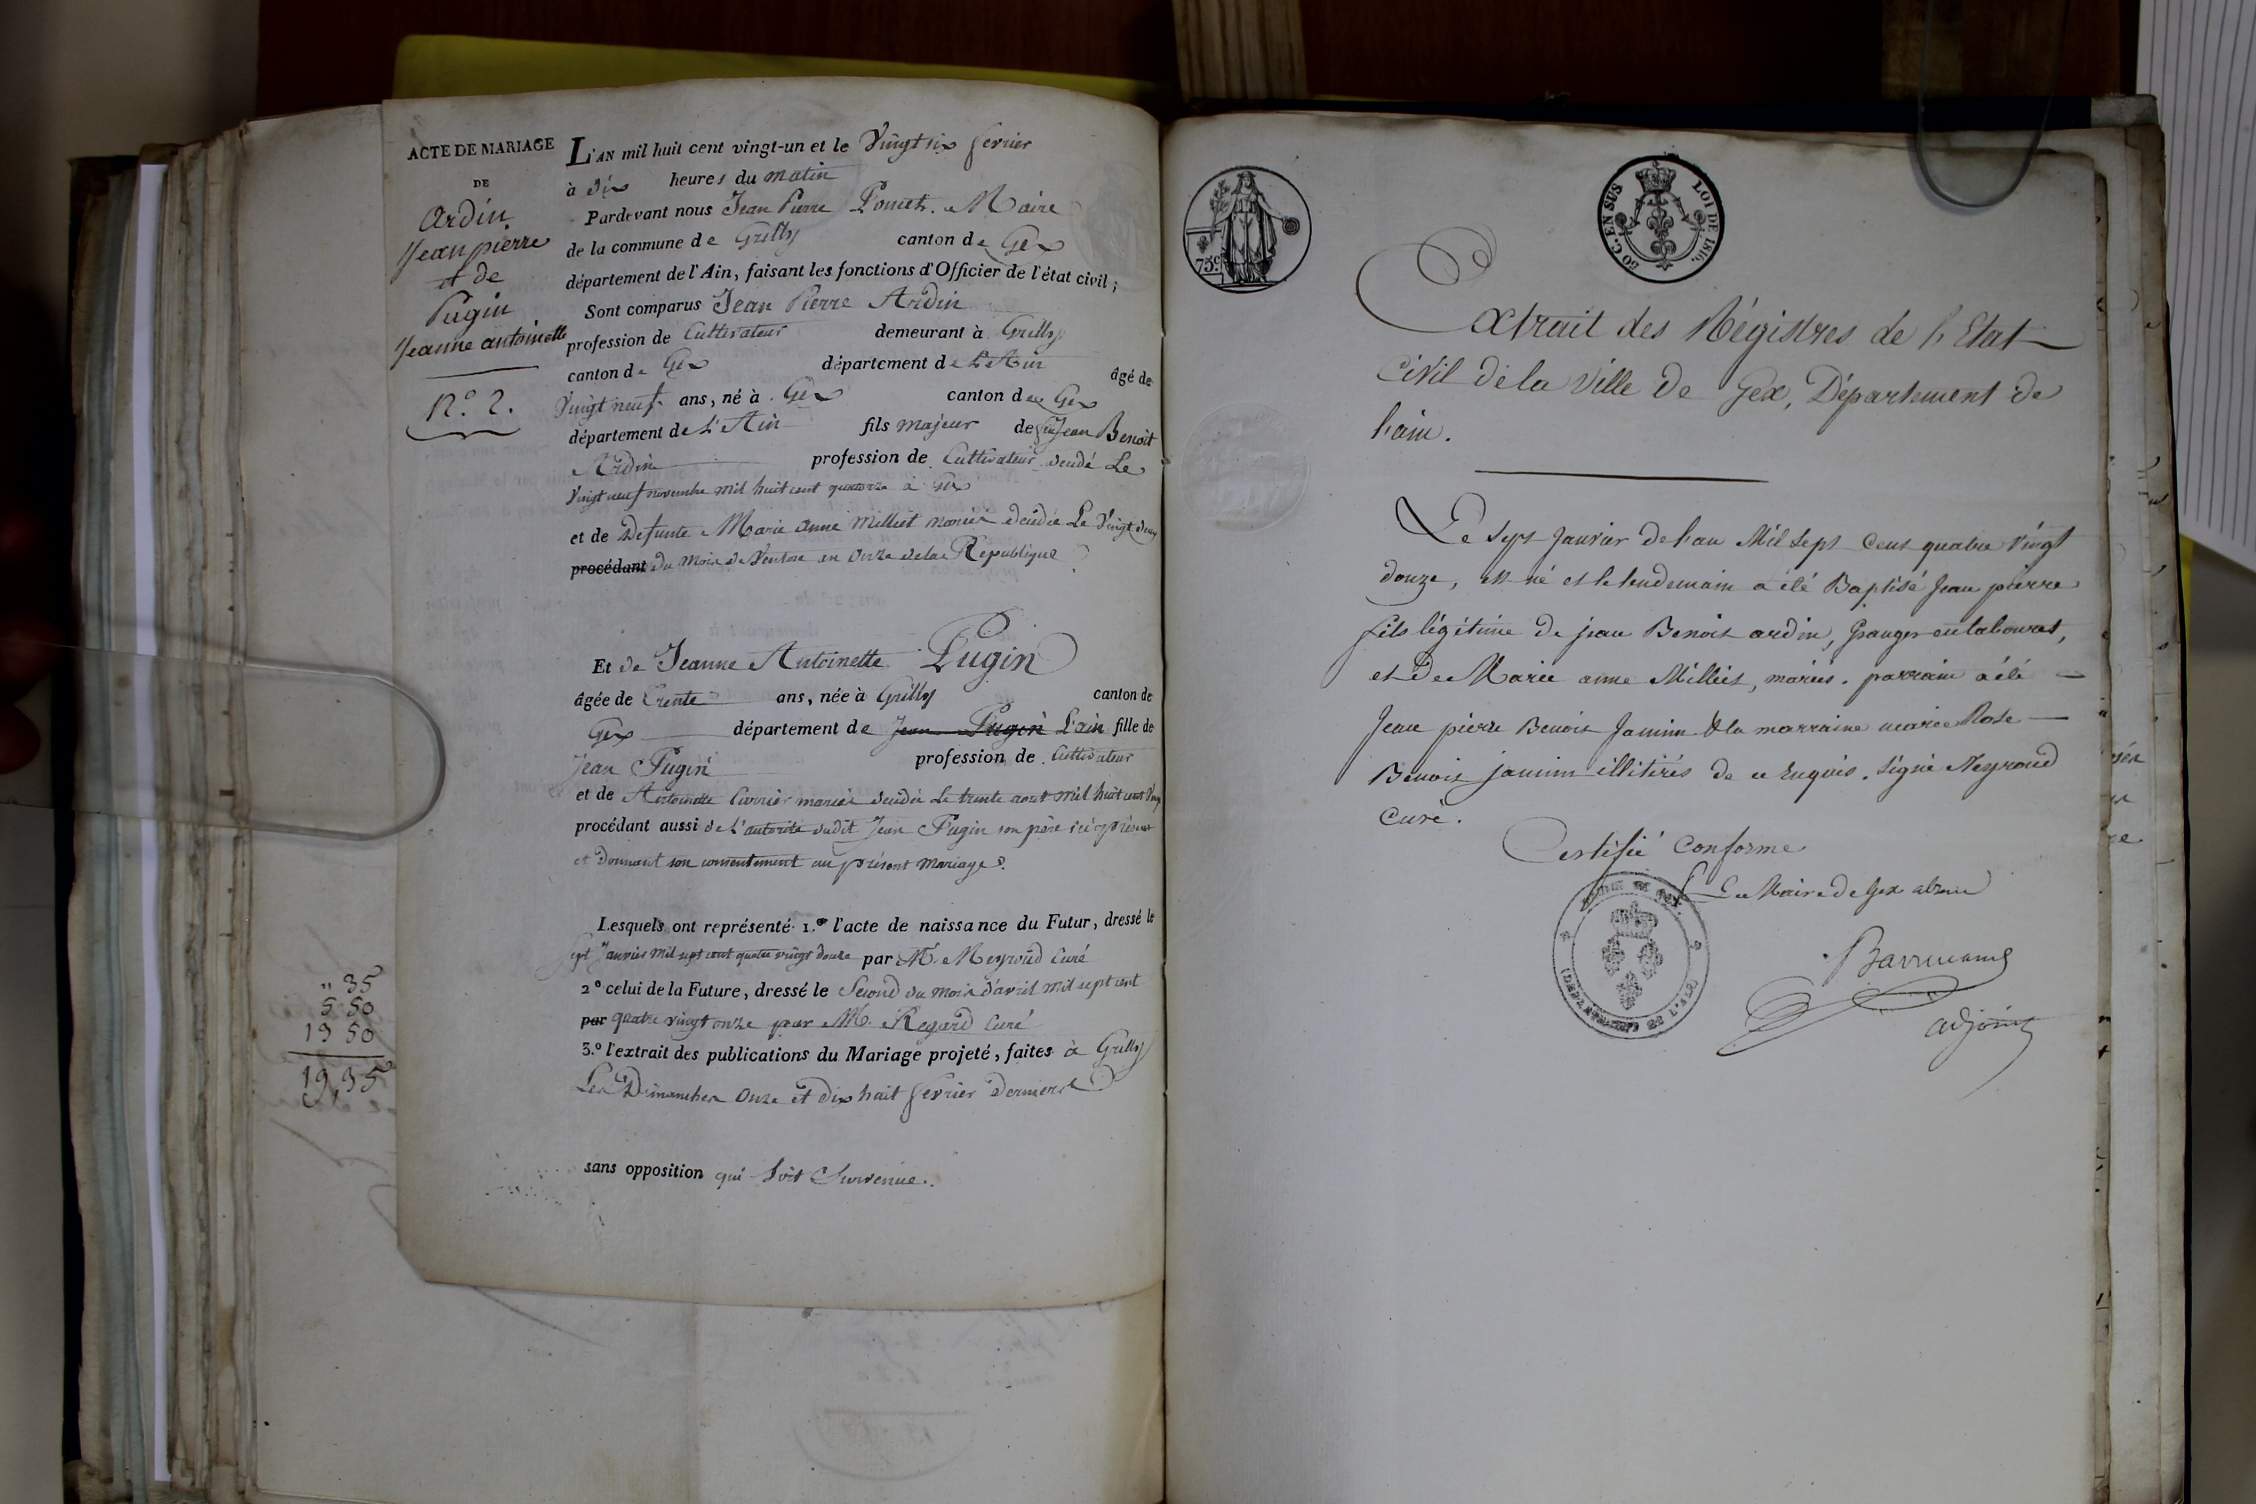 ACTE DE MARIAGE
DE
Ardin
Jean pierre
et de
Pugin
Jeanne antoinette
N.º 2.
L'AN mil huit cent vingt-un et le Vingt six fevrier
à dix heures du matin
Pardevant nous Jean Pierre Maire
de la commune de Grilly canton de Gex
département de l'Ain, faisant les fonctions d'Officier de l'état civil;
Sont comparus Jean Pierre Ardin
profession de Cultivateur demeurant à Grilly
canton de Gex département de L'Ain âgé de
Vingt neuf ans, né à Gex canton de Gex
département de L'Ain fils majeur de feu Jean Benoit
Ardin profession de Cultivateur décédé Le
Vingt neuf novembre mil huit cent quatorze à Gex
et de Defunte Marie anne Milliet mariés décédée Le Vingt deux
procédant du Mois de Ventose an Onze de la République
Et de Jeanne Antoinette Pugin
âgée de Trente ans, née à Grilly canton de
Gex département de Jean Pugin L'ain fille de
Jean Pugin profession de Cultivateur
et de Antoinette mariés décédée Le trente aout mil huit cent Vingt
procédant aussi de L'autorité dudit Jean Pugin son père ici présent
et Donnant son consentement au présent Mariage.
Lesquels ont représenté 1.º l'acte de naissance du Futur, dressé le
sept Janvier mil sept cent quatre vingt douze par M. Neyroud Curé
2º celui de la Future, dressé le Second du mois d'avril mil sept cent
par quatre vingt onze par M. Regard Curé
3.º l'extrait des publications du Mariage projeté, faites à Grilly
Les Dimanches Onze et dix huit fevrier Derniers
sans opposition qui Soit Survenue.
" 35
5 50
13 50
19,35
75 c.
50 C. EN SUS
LOI DE 1816.
Extrait des Régistres de l'Etat
Civil de la Ville de Gex, Département de
l'ain.
Le sept Janvier de l'an Mil Sept Cent quatre vingt
douze, est né et le lendemain a été Baptisé Jean pierre
fils légitime de jean Benoit ardin, Granger
et de Marie anne Milliet, mariés. parrain a été
Jean pierre Benoit Jamin & la marraine marie Rose
Benoit jamin illitérés de ce Enquis. signé Neyroud
Curé.
Certifié Conforme
Le Maire de Gex absent
adjoint